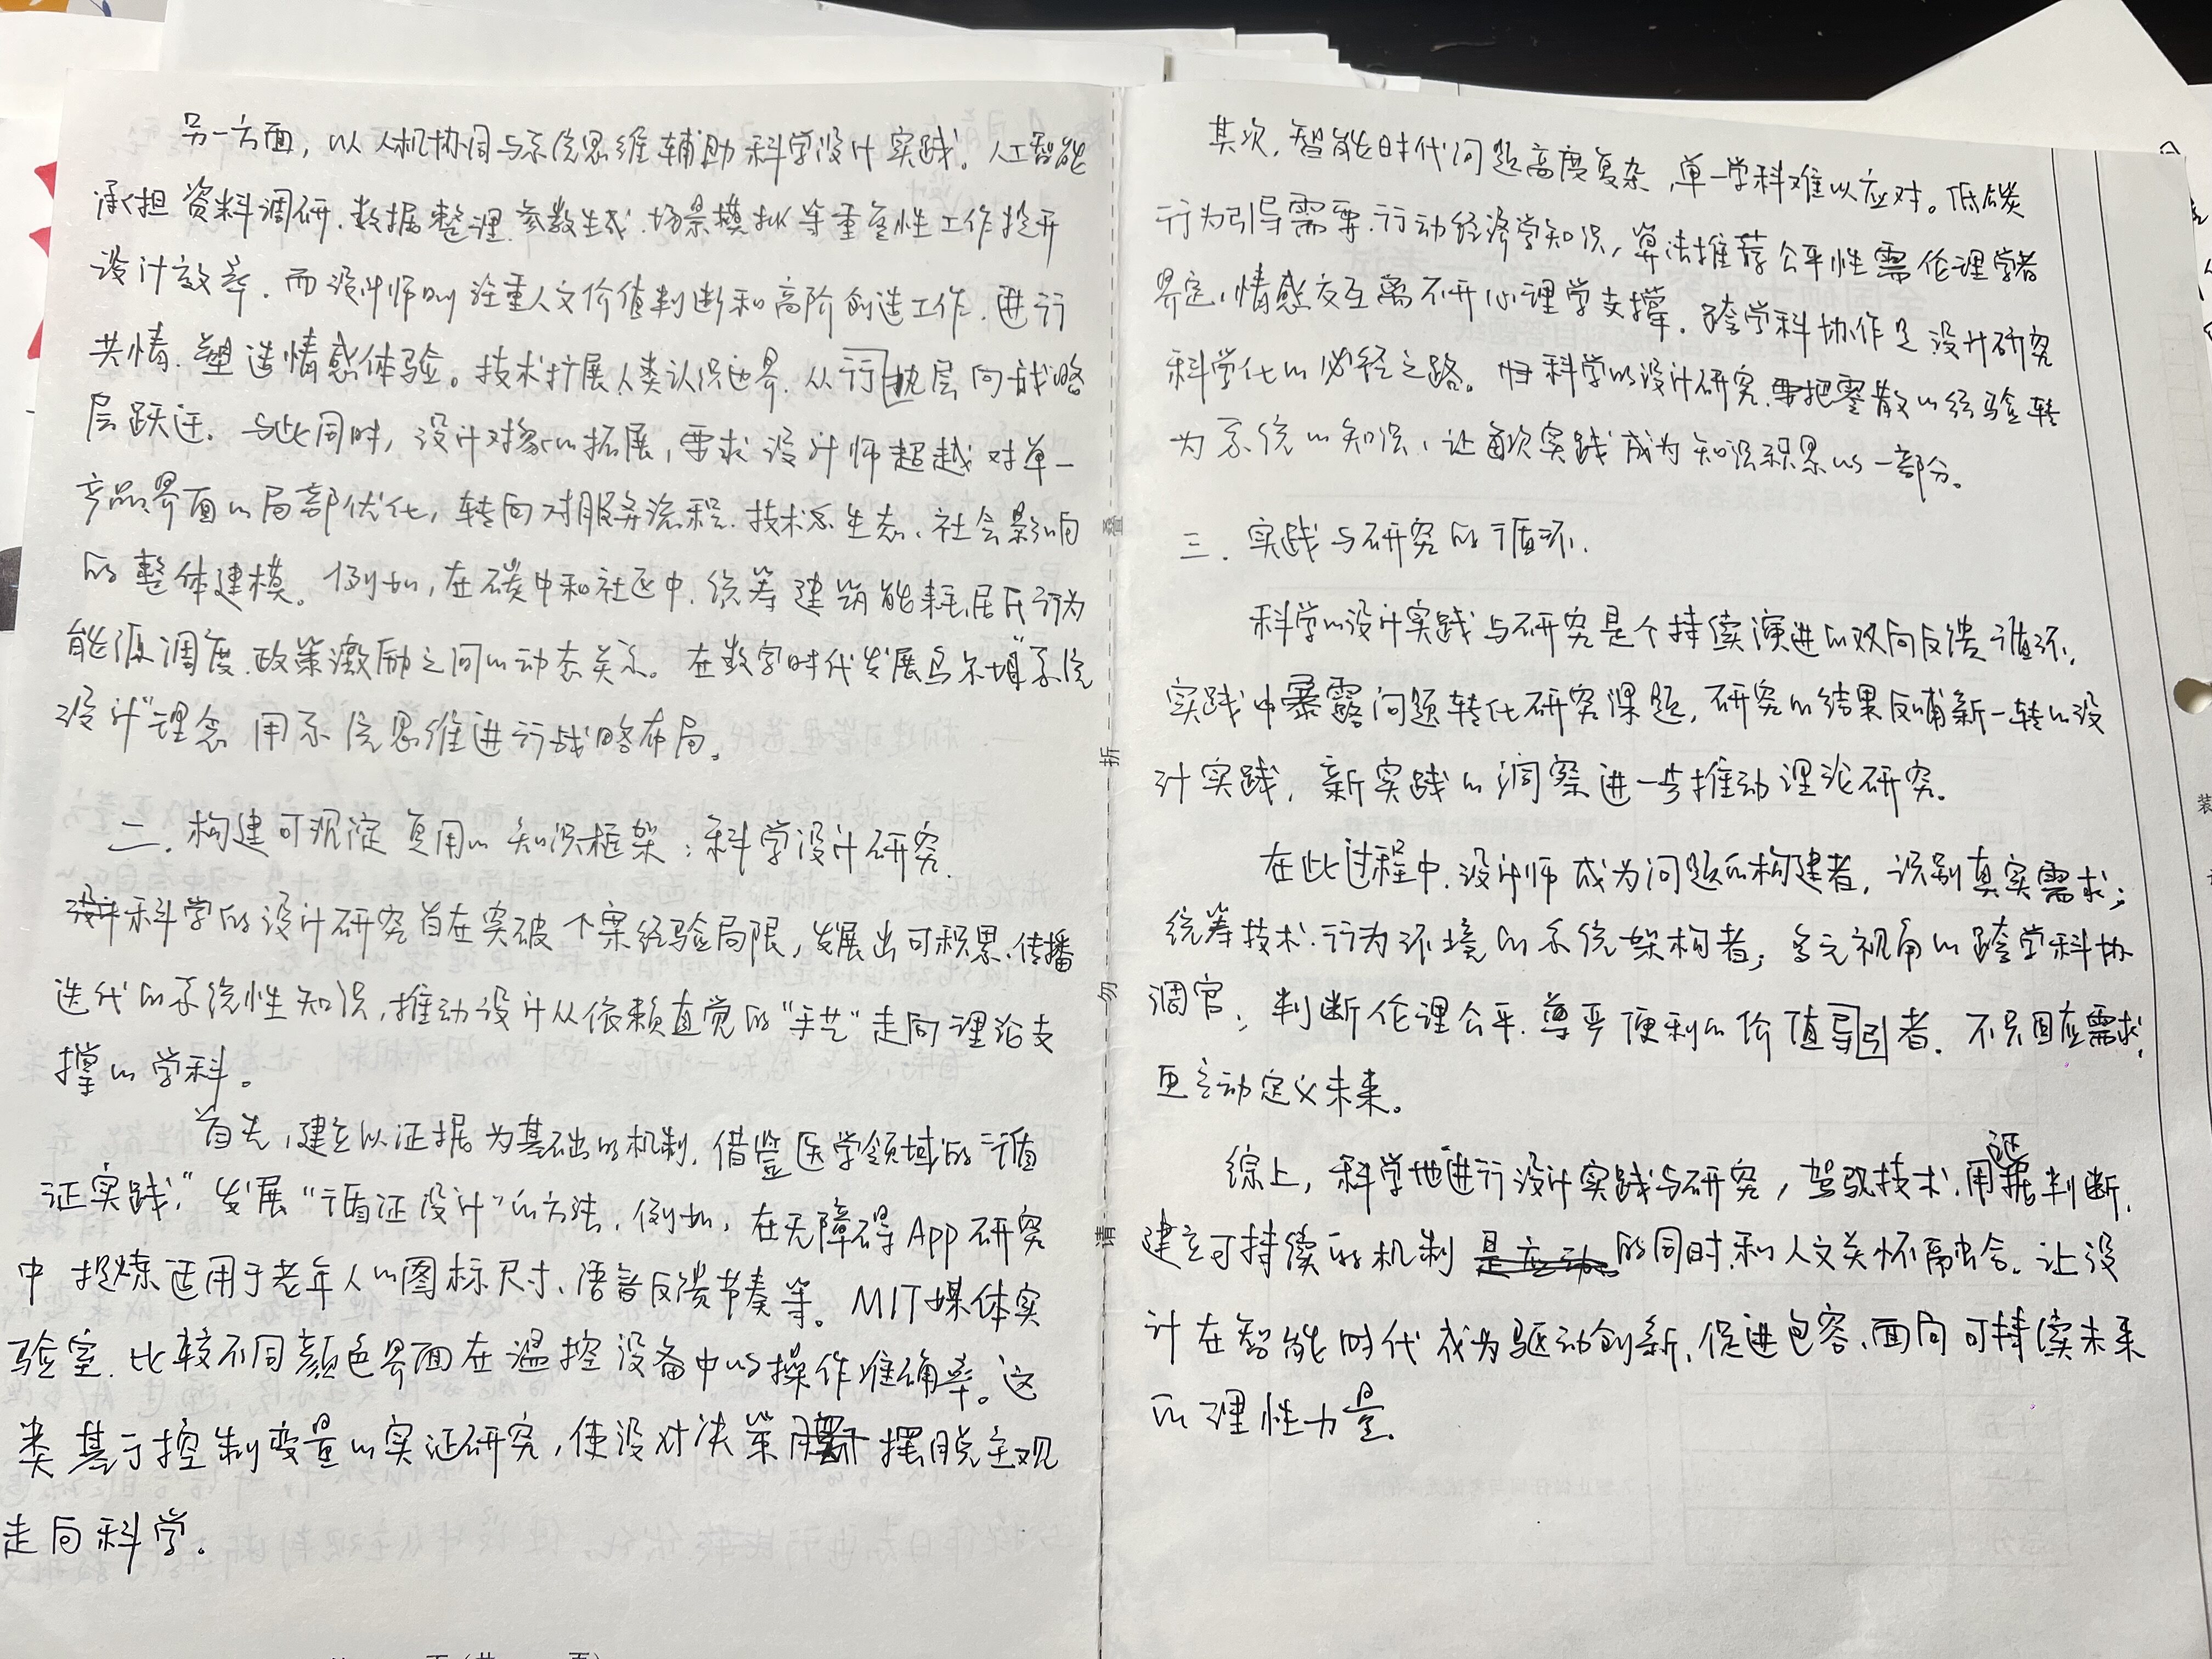 另一方面，以人机协同与系统思维辅助科学设计实践。人工智能
承担资料调研、数据整理、参数生成、场景模拟等重复性工作提升
设计效率，而设计师则注重人文价值判断和高阶创造工作，进行
共情、塑造情感体验。技术扩展人类认识世界，从行执层向战略
层跃迁。与此同时，设计对象的拓展，要求设计师超越对单一
产品界面的局部优化，转向对服务流程、技术生态、社会影响
的整体建模。例如，在碳中和社区中，统筹建筑能耗、居民行为
能源调度、政策激励之间的动态关系。在数字时代发展唐纳“系统
设计”理念 用系统思维进行战略布局。
二、构建可 复用的知识框架：科学设计研究
科学的设计研究旨在突破个案经验局限，发展出可积累、传播
迭代的系统性知识，推动设计从依赖直觉的“手艺”走向理论支
撑的学科。
首先，建立以证据为基础的机制，借鉴医学领域的“循
证实践”，发展“循证设计”的方法，例如，在无障碍App研究
中 提炼适用于老年人的图标尺寸、语音反馈节奏等。MIT媒体实
验室，比较不同颜色界面在温控设备中的操作准确率。这
类基于控制变量的实证研究，使设计决策 摆脱主观
走向科学。
叠
折
勿
请
其次，智能时代问题高度复杂，单一学科难以应对。低碳
行为引导需要行动经济学知识，算法推荐公平性需伦理学者
界定，情感交互离不开心理学支撑。跨学科协作是设计研究
科学化的必经之路。科学的设计研究，要把零散的经验转
为系统的知识，让每次实践成为知识积累的一部分。
三、实践与研究的循环.
科学的设计实践与研究是个持续演进的双向反馈循环，
实践中暴露问题转化研究课题，研究的结果反哺新一转的设
计实践，新实践的洞察进一步推动理论研究。
在此过程中，设计师成为问题的构建者，识别真实需求；
统筹技术、行为环境的系统架构者；多元视角的跨学科协
调官；判断伦理公平、尊严便利的价值导引者。不只回应需求，
更主动定义未来。
综上，科学地进行设计实践与研究，驾驭技术，用证据判断，
建立可持续的机制 的同时，和人文关怀融合。让设
计在智能时代成为驱动创新，促进包容、面向可持续未来
的理性力量。
装